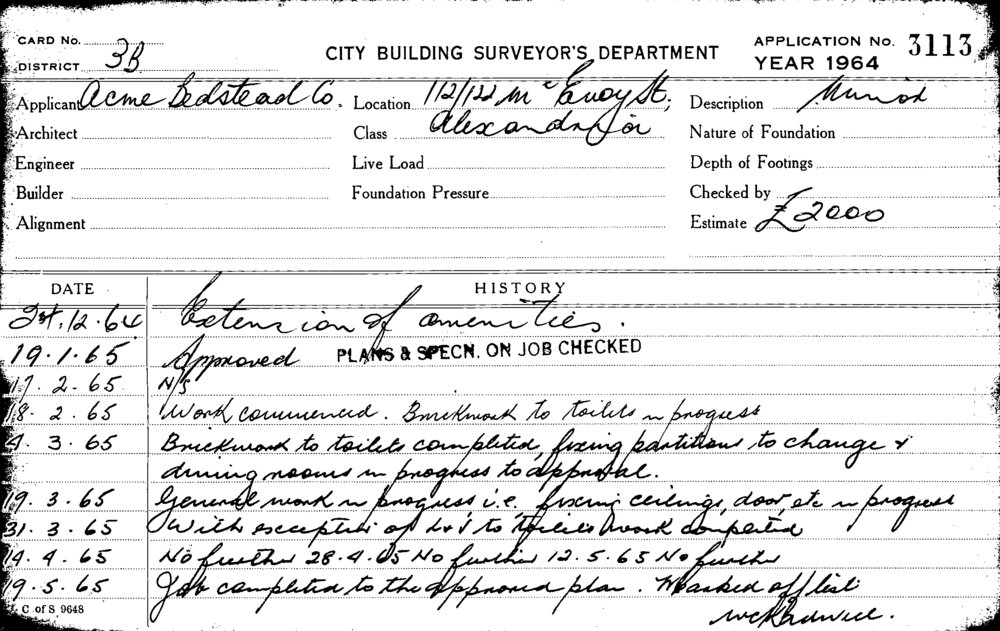 CARD No.
DISTRICT 3B
CITY BUILDING SURVEYOR'S DEPARTMENT
APPLICATION No. 3113
YEAR 1964
Applicant Acme Bedstead Co. Location 112/122 McEvoy St; Description Minor
Architect Class Alexandria Nature of Foundation
Engineer Live Load Depth of Footings
Builder Foundation Pressure Checked by
Alignment Estimate £2000
DATE HISTORY
.12.64 Extension of amenities.
19.1.65 Approved PLANS & SPECN. ON JOB CHECKED
17.2.65 N/S
18.2.65 Work commenced. Brickwork to toilets in progress
4.3.65 Brickwork to toilets completed, fixing partitions to change &
dining rooms in progress to approval.
19.3.65 General work in progress i.e. fixing ceilings, door, etc in progress
31.3.65 With exception of to toilets work completed
14.4.65 No further 28.4.65 No further 12.5.65 No further
19.5.65 Job completed to the approved plan. Marked off list
C of S 9648